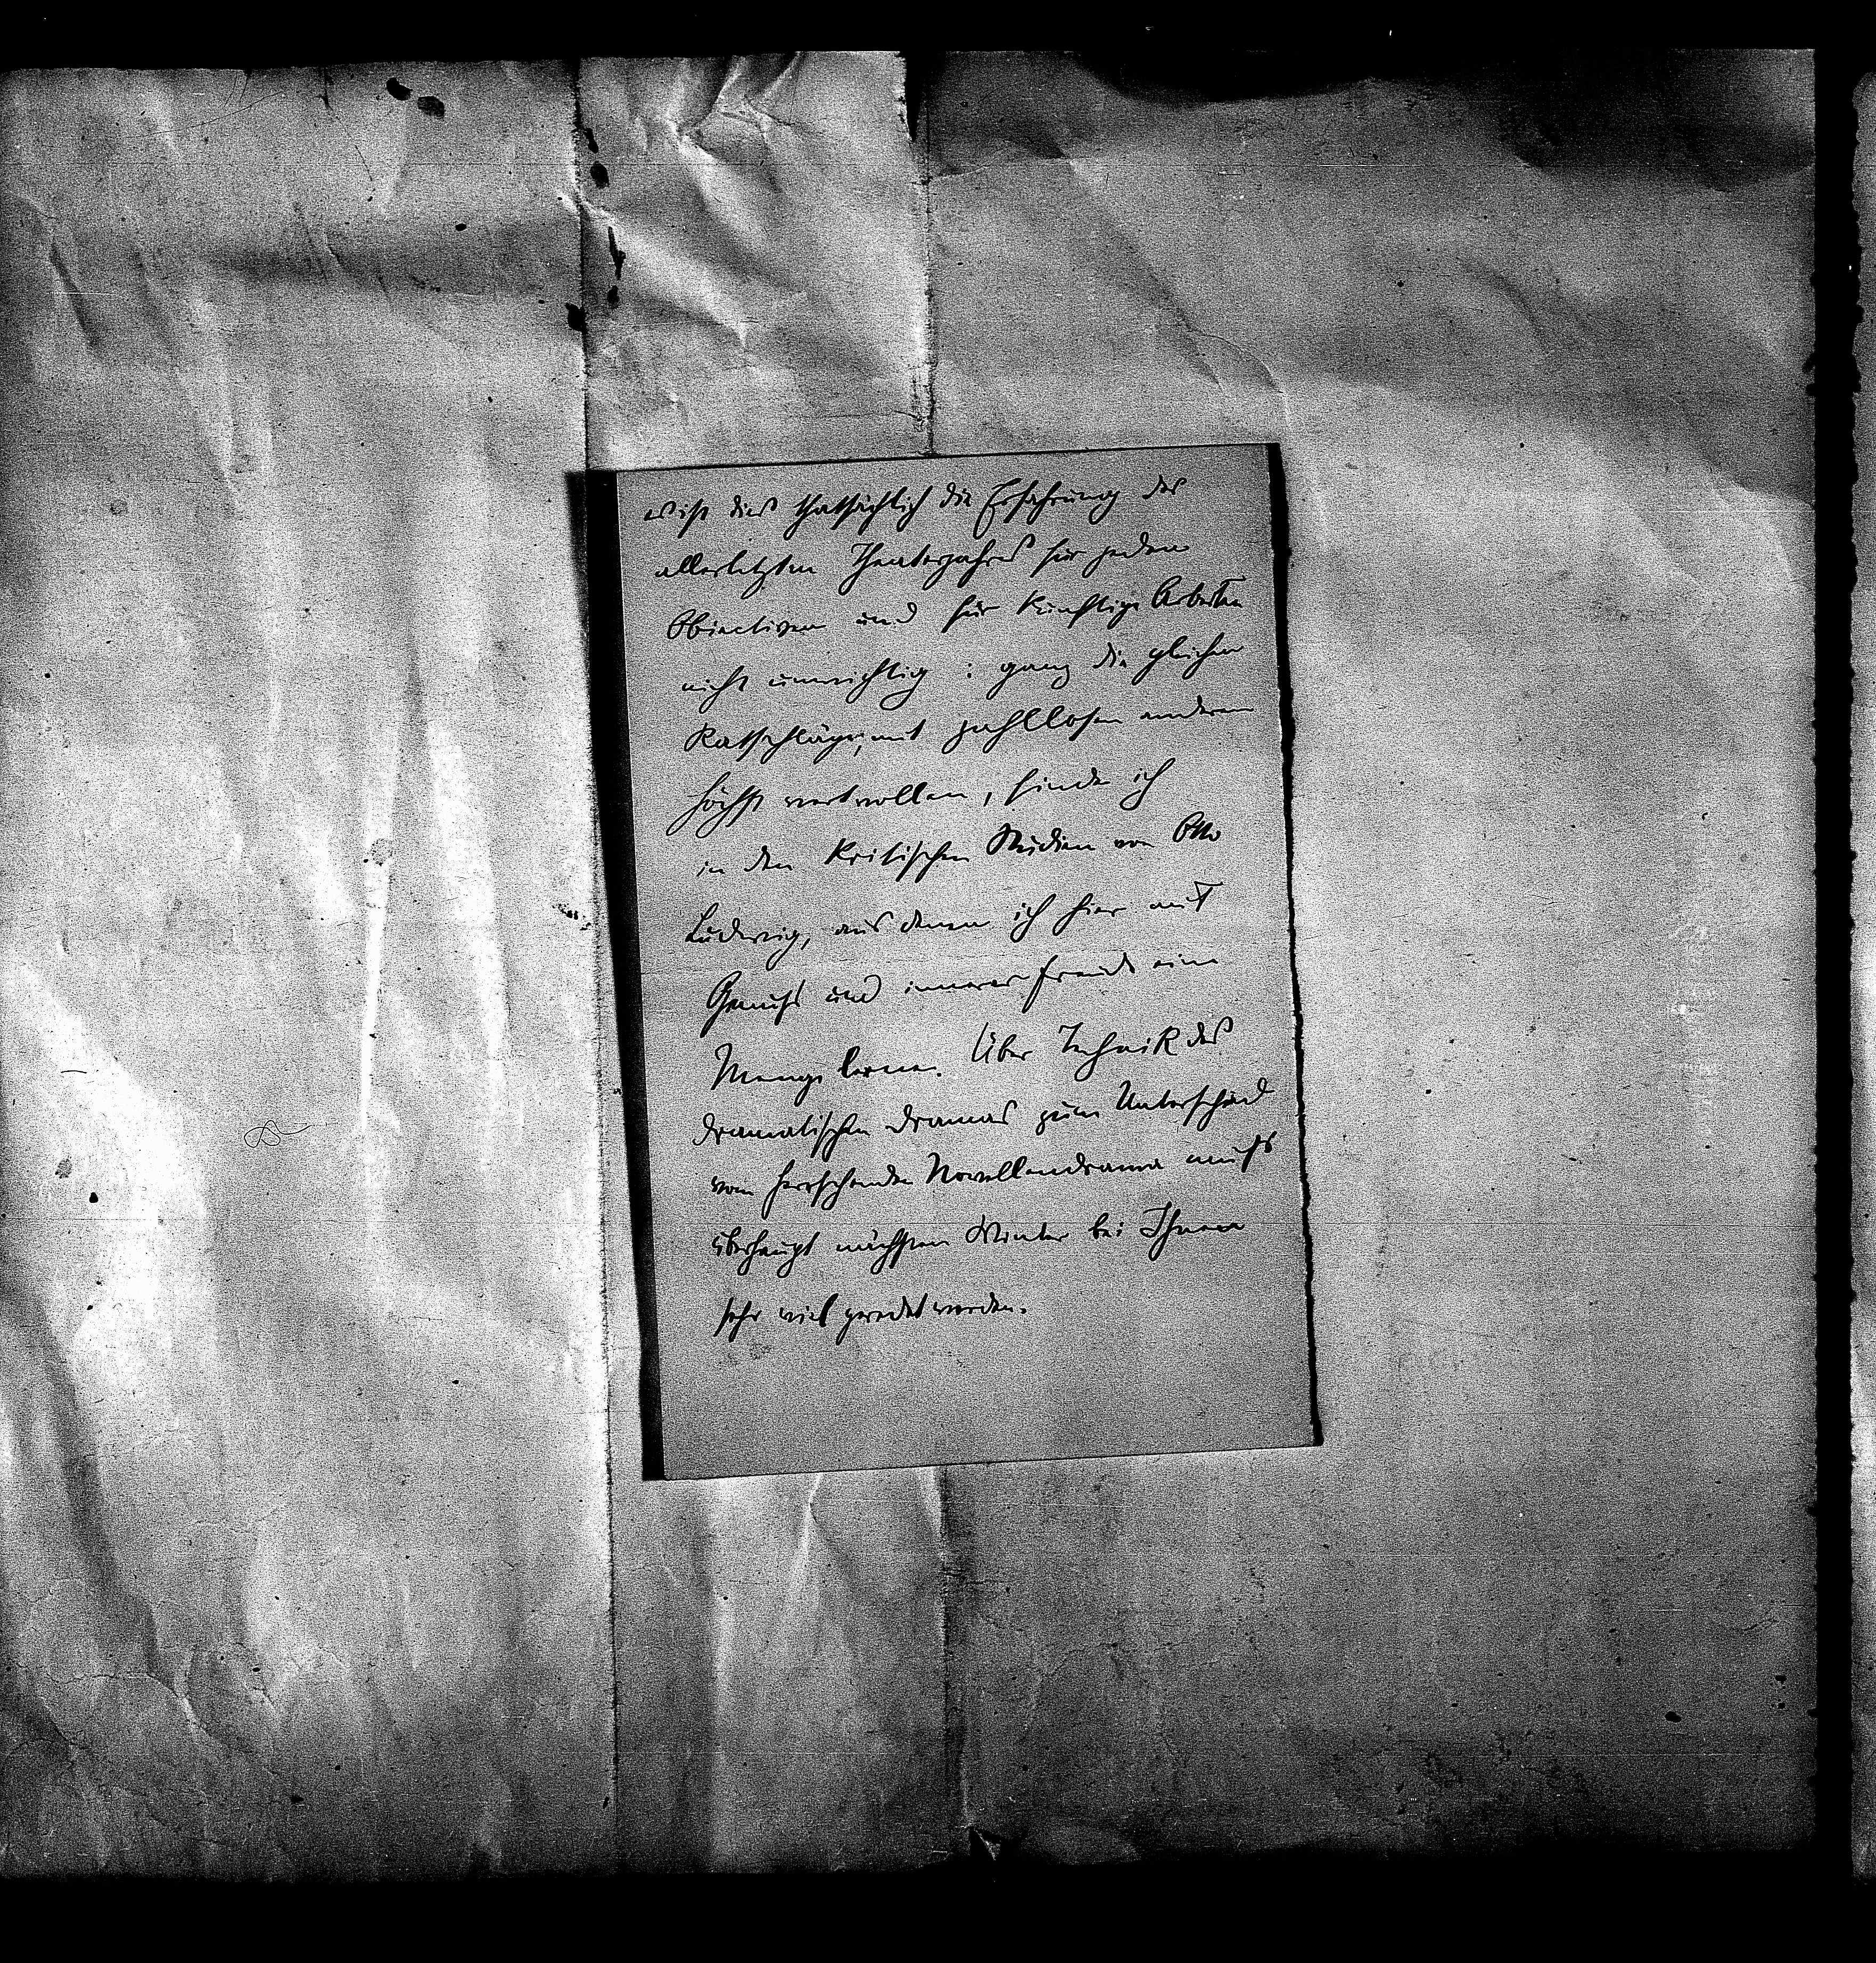 es ist dies thatsächlich die Erfahrung des
allerletzten Theaterjahres für jeden
Objectiven und für künftige Arbeiten
nicht unwichtig: ganz die gleichen
Ratschläge, mit zahllosen anderen
höchst wertvollen, finde ich
in den kritischen Studien von Otto
Ludwig, aus denen ich hier mit
Genuß und innerer Freude eine
Menge lerne. Über Technik des
dramatischen Dramas zum Unterschied
vom herrschenden Novellendrama muß
überhaupt nächsten Winter bei Ihnen
sehr viel geredet werden.